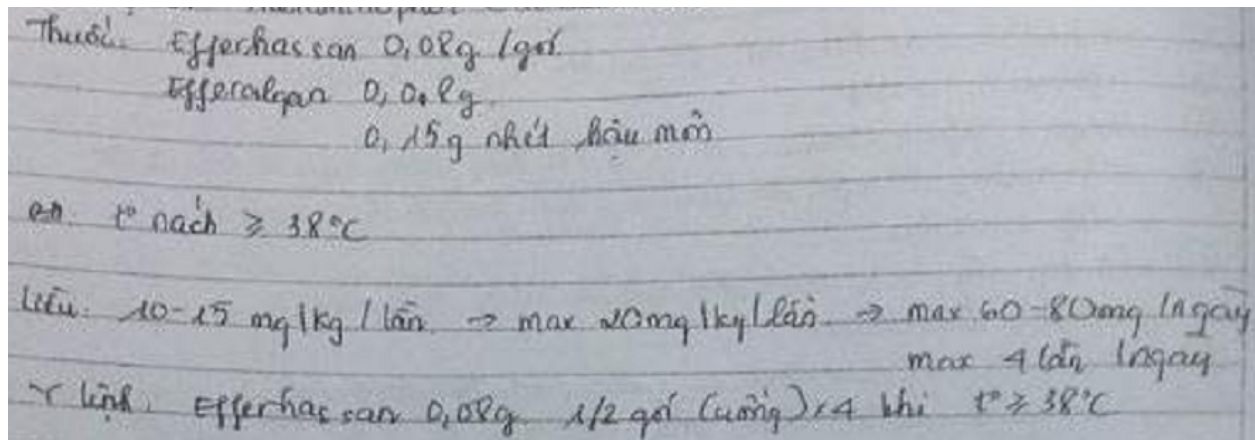 Thuốc. Efferhassan 0,08g /gói
Efferalgan 0,08g
0,15g nhét hậu môn
t° nách ≥ 38°C
Liều. 10-15 mg/kg/lần → max 20mg/kg/lần → max 60-80mg/ngày
max 4 lần /ngày
Y lệnh. Efferhassan 0,08g 1/2 gói (uống) x4 khi t° ≥ 38°C